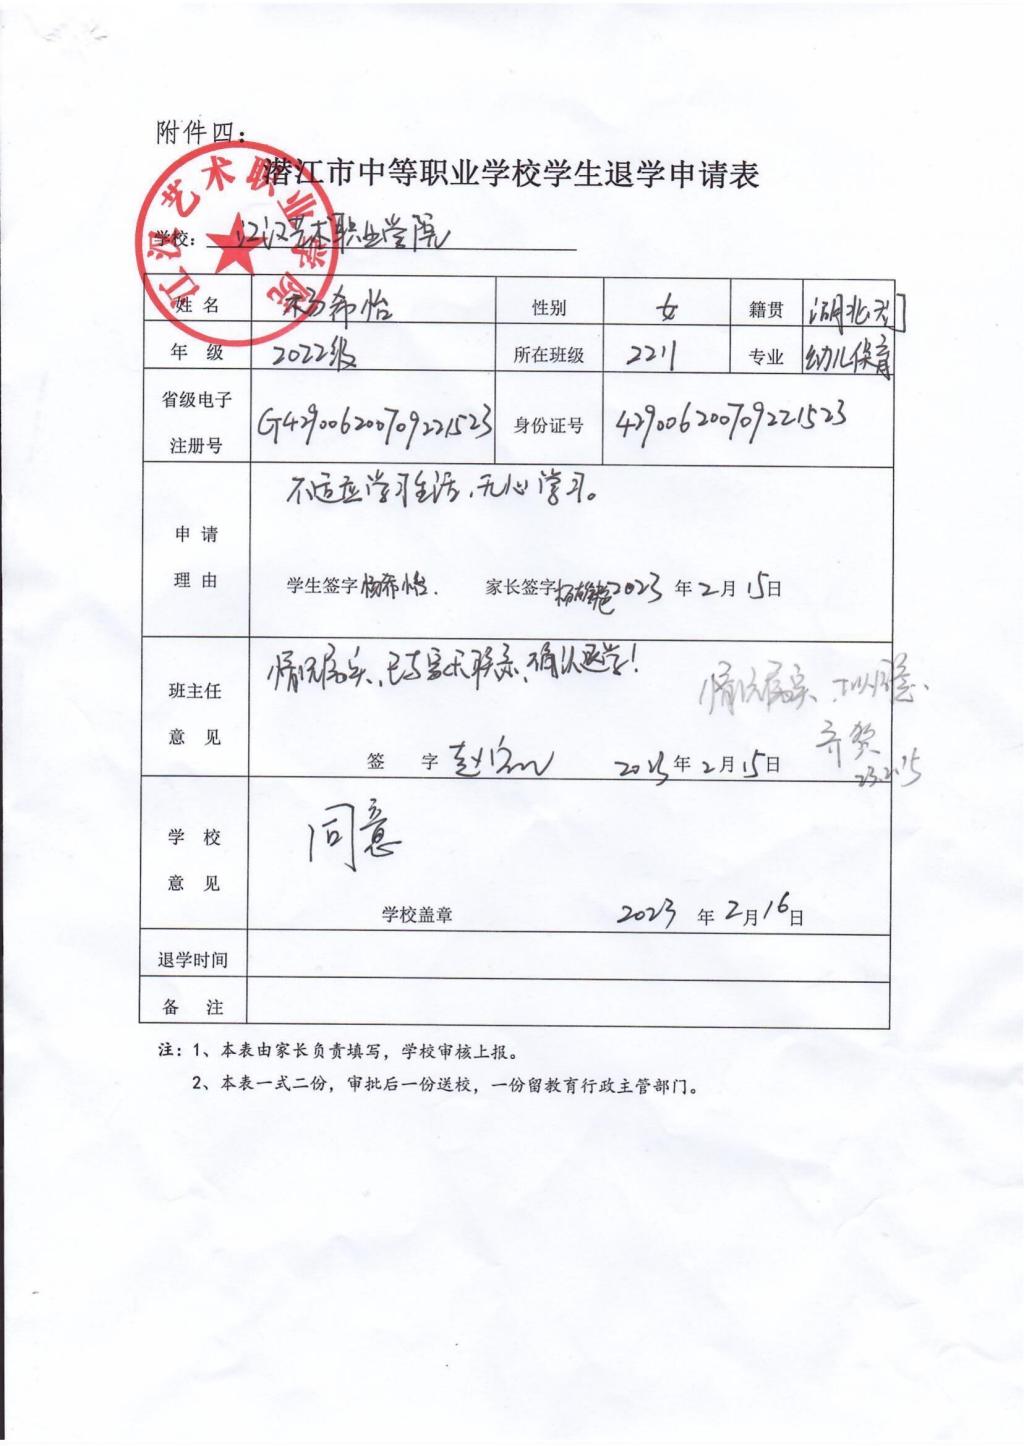 附件四：
潜江市中等职业学校学生退学申请表
江汉艺术职业学院
学校： 江汉艺术职业学院
姓 名 杨希怡 性别 女 籍贯 湖北天门
年 级 2022级 所在班级 2211 专业 幼儿保育
省级电子注册号 G429006200709221523 身份证号 429006200709221523
申请理由 不适应学习生活，无心学习。
学生签字 杨希怡. 家长签字 2023 年 2 月 15 日
班主任意见 情况属实，已与家长联系，确认退学！
情况属实、
签 字 2023 年 2 月 15 日
23.2.15
学校意见 同意
学校盖章 2023 年 2 月 16 日
退学时间
备 注
注：1、本表由家长负责填写，学校审核上报。
2、本表一式二份，审批后一份送校，一份留教育行政主管部门。